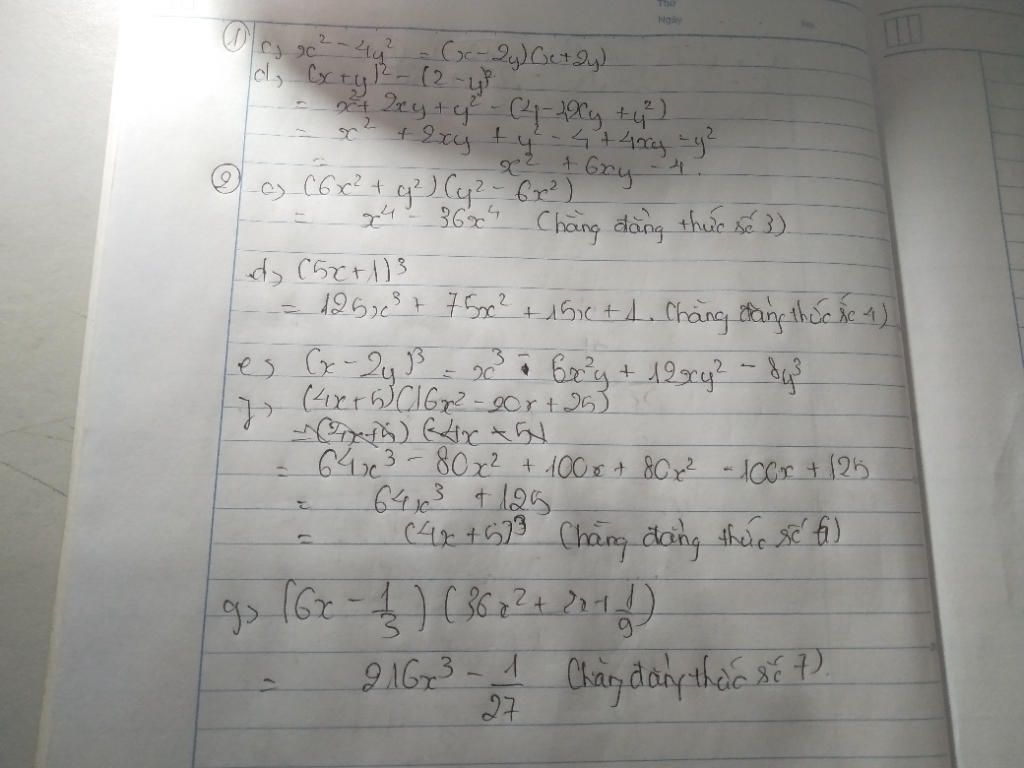 Thứ
Ngày No.
① c, x² - 4y² = (x-2y)(x+2y)
d, (x+y)² - (2-y)²
= x² + 2xy + y² - (4 - 4xy + y²)
= x² + 2xy + y² - 4 + 4xy = y²
= x² + 6xy - 4.
② c, (6x² + y²)(y² - 6x²)
= x⁴ - 36x⁴ (hằng đẳng thức số 3)
d, (5x+1)³
= 125x³ + 75x² + 15x + 1. (hằng đẳng thức số 4)
e, (x - 2y)³ = x³ - 6x²y + 12xy² - 8y³
f, (4x+5)(16x² - 20x + 25)
= 64x³ - 80x² + 100x + 80x² - 100x + 125
= 64x³ + 125
= (4x+5)³ (hằng đẳng thức số 6)
g, (6x - 1/3)(36x² + 2x + 1/9)
= 216x³ - 1/27 (hằng đẳng thức số 7).